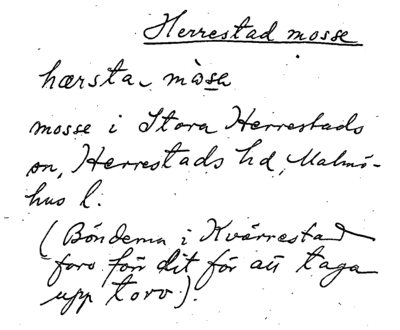 Herrestad mosse
hærsta mòsa
mosse i Stora Herrestads
sn, Herrestads hd, Malmö-
hus l.
(Bönderna i Kvärrestad
foro förr dit för att taga
upp torv).